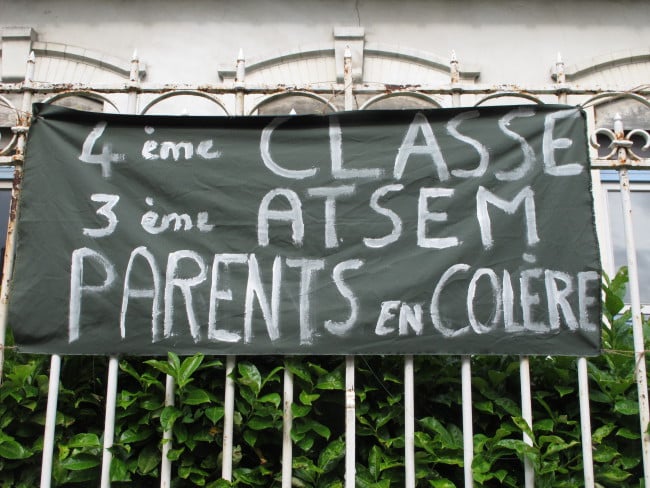 4ème CLASSE
3ème ATSEM
PARENTS EN COLÈRE